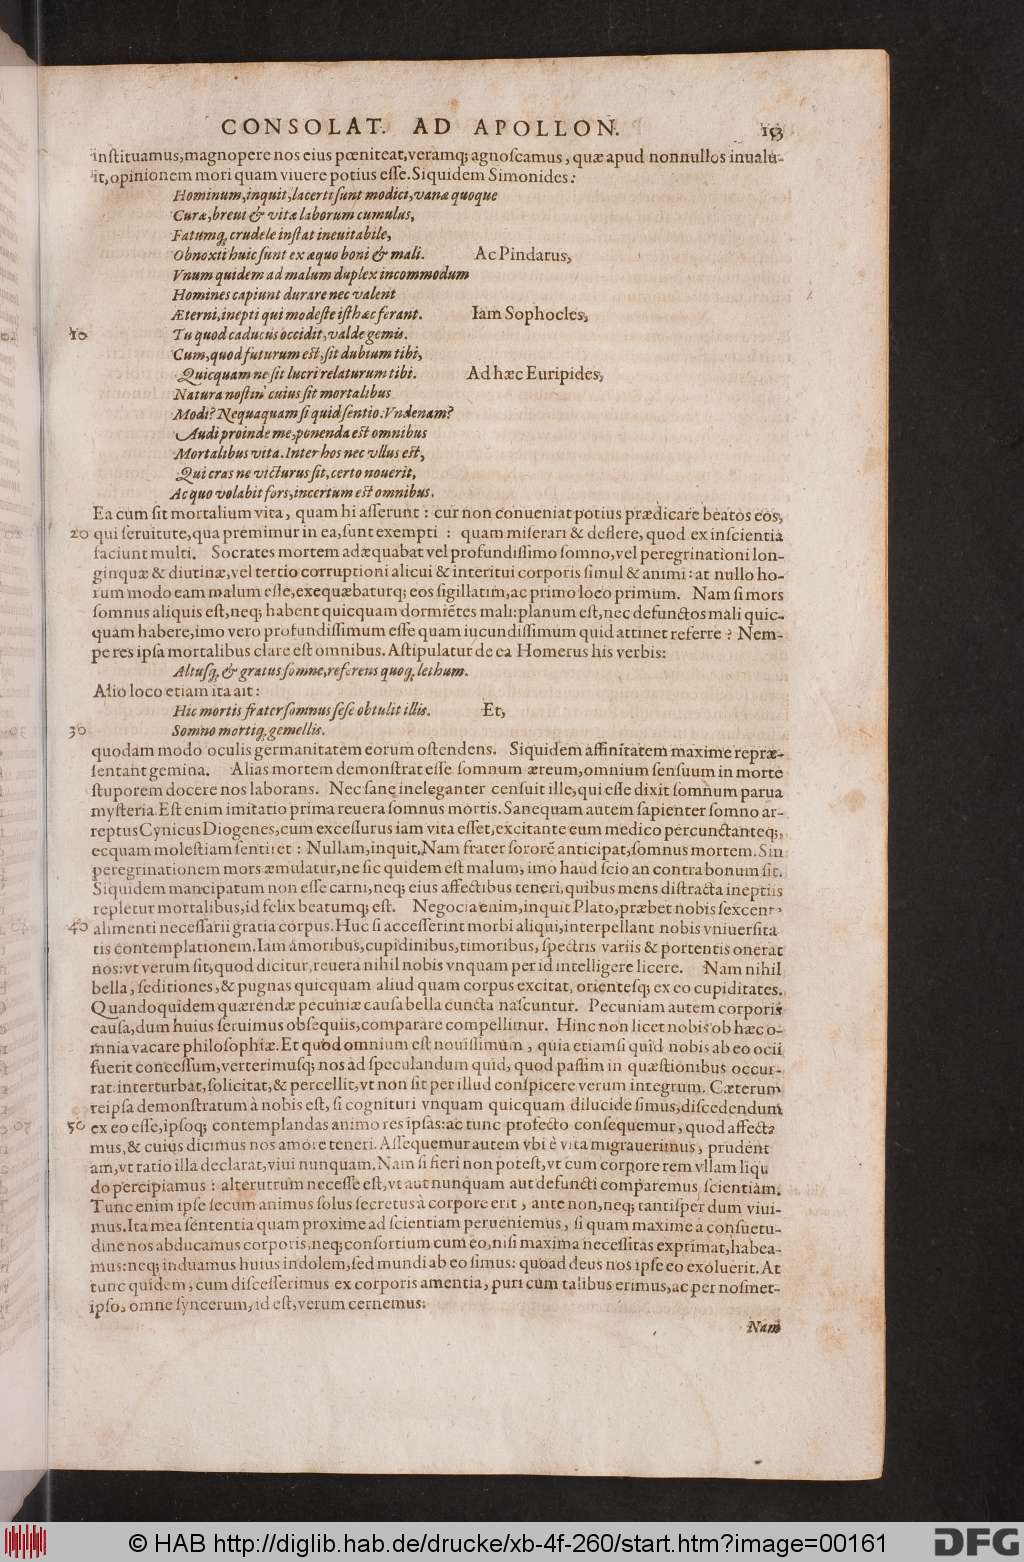 CONSOLAT. AD APOLLON. 153
instituamus, magnopere nos eius pœniteat, veramq; agnoscamus, quæ apud nonnullos inualu-
it, opinionem mori quam viuere potius esse. Siquidem Simonides:
Hominum, inquit, lacerti sunt modici, vanæ quoque
Curæ, breui & vitæ laborum cumulus,
Fatumq; crudele instat ineuitabile,
Obnoxii huic sunt ex æquo boni & mali. Ac Pindarus,
Vnum quidem ad malum duplex incommodum
Homines capiunt durare nec valent
Æterni, inepti qui modeste isthæc ferant. Iam Sophocles,
10 Tu quod caducus occidit, valde gemis.
Cum, quod futurum est, sit dubium tibi,
Quicquam ne sit lucri relaturum tibi. Ad hæc Euripides,
Natura nostin' cuius sit mortalibus
Modi? Nequaquam si quid sentio. Vndenam?
Audi proinde me, ponenda est omnibus
Mortalibus vita. Inter hos nec vllus est,
Qui cras ne victurus sit, certo nouerit,
Ac quo volabit fors, incertum est omnibus.
Ea cum sit mortalium vita, quam hi asserunt: cur non conueniat potius prædicare beatos eos,
20 qui seruitute, qua premimur in ea, sunt exempti: quam miserari & deflere, quod ex inscientia
faciunt multi. Socrates mortem adæquabat vel profundissimo somno, vel peregrinationi lon-
ginquæ & diutinæ, vel tertio corruptioni alicui & interitui corporis simul & animi: at nullo ho-
rum modo eam malum esse, exequæbaturq; eos sigillatim, ac primo loco primum. Nam si mors
somnus aliquis est, neq; habent quicquam dormiẽtes mali: planum est, nec defunctos mali quic-
quam habere, imo vero profundissimum esse quam iucundissimum quid attinet referre? Nem-
pe res ipsa mortalibus clare est omnibus. Astipulatur de ea Homerus his verbis:
Altusq; & gratus somne, referens quoq; lethum.
Alio loco etiam ita ait:
Hic mortis frater somnus sese obtulit illis. Et,
30 Somno mortiq; gemellis.
quodam modo oculis germanitatem eorum ostendens. Siquidem affinitatem maxime repræ-
sentant gemina. Alias mortem demonstrat esse somnum æreum, omnium sensuum in morte
stuporem docere nos laborans. Nec sane ineleganter censuit ille, qui esse dixit somnum parua
mysteria. Est enim imitatio prima reuera somnus mortis. Sanequam autem sapienter somno ar-
reptus Cynicus Diogenes, cum excessurus iam vita esset, excitante eum medico percunctanteq;,
ecquam molestiam sentiret: Nullam, inquit, Nam frater sororẽ anticipat, somnus mortem. Sin
peregrinationem mors æmulatur, ne sic quidem est malum, imo haud scio an contra bonum sit.
Siquidem mancipatum non esse carni, neq; eius affectibus teneri, quibus mens distracta ineptiis
repletur mortalibus, id felix beatumq; est. Negocia enim, inquit Plato, præbet nobis sexcenta
40 alimenti necessarii gratia corpus. Huc si accesserint morbi aliqui, interpellant nobis vniuersita
tis contemplationem. Iam amoribus, cupidinibus, timoribus, spectris variis & portentis onerat
nos: vt verum sit, quod dicitur, reuera nihil nobis vnquam per id intelligere licere. Nam nihil
bella, seditiones, & pugnas quicquam aliud quam corpus excitat, orientesq; ex eo cupiditates.
Quandoquidem quærendæ pecuniæ causa bella cuncta nascuntur. Pecuniam autem corporis
causa, dum huius seruimus obsequiis, comparare compellimur. Hinc non licet nobis ob hæc o-
mnia vacare philosophiæ. Et quod omnium est nouissimum, quia etiamsi quid nobis ab eo ocii
fuerit concessum, verterimusq; nos ad speculandum quid, quod passim in quæstionibus occur-
rat: interturbat, solicitat, & percellit, vt non sit per illud conspicere verum integrum. Cæterum
reipsa demonstratum à nobis est, si cognituri vnquam quicquam dilucide simus, discedendum
50 ex eo esse, ipsoq; contemplandas animo res ipsas: ac tunc profecto consequemur, quod affecta
mus, & cuius dicimus nos amore teneri. Assequemur autem vbi è vita migrauerimus, prudent
am, vt ratio illa declarat, viui nunquam. Nam si fieri non potest, vt cum corpore rem vllam liqu
do percipiamus: alterutrum necesse est, vt aut nunquam aut defuncti comparemus scientiam.
Tunc enim ipse secum animus solus secretus à corpore erit, ante non, neq; tantisper dum viui-
mus. Ita mea sententia quam proxime ad scientiam perueniemus, si quam maxime à consuetu-
dine nos abducamus corporis, neq; consortium cum eo, nisi maxima necessitas exprimat, habea-
mus: neq; induamus huius indolem, sed mundi ab eo simus: quoad deus nos ipse eo exoluerit. At
tunc quidem, cum discesserimus ex corporis amentia, puri cum talibus erimus, ac per nosmet-
ipsos omne syncerum, id est, verum cernemus:
Nam
© HAB http://diglib.hab.de/drucke/xb-4f-260/start.htm?image=00161
DFG